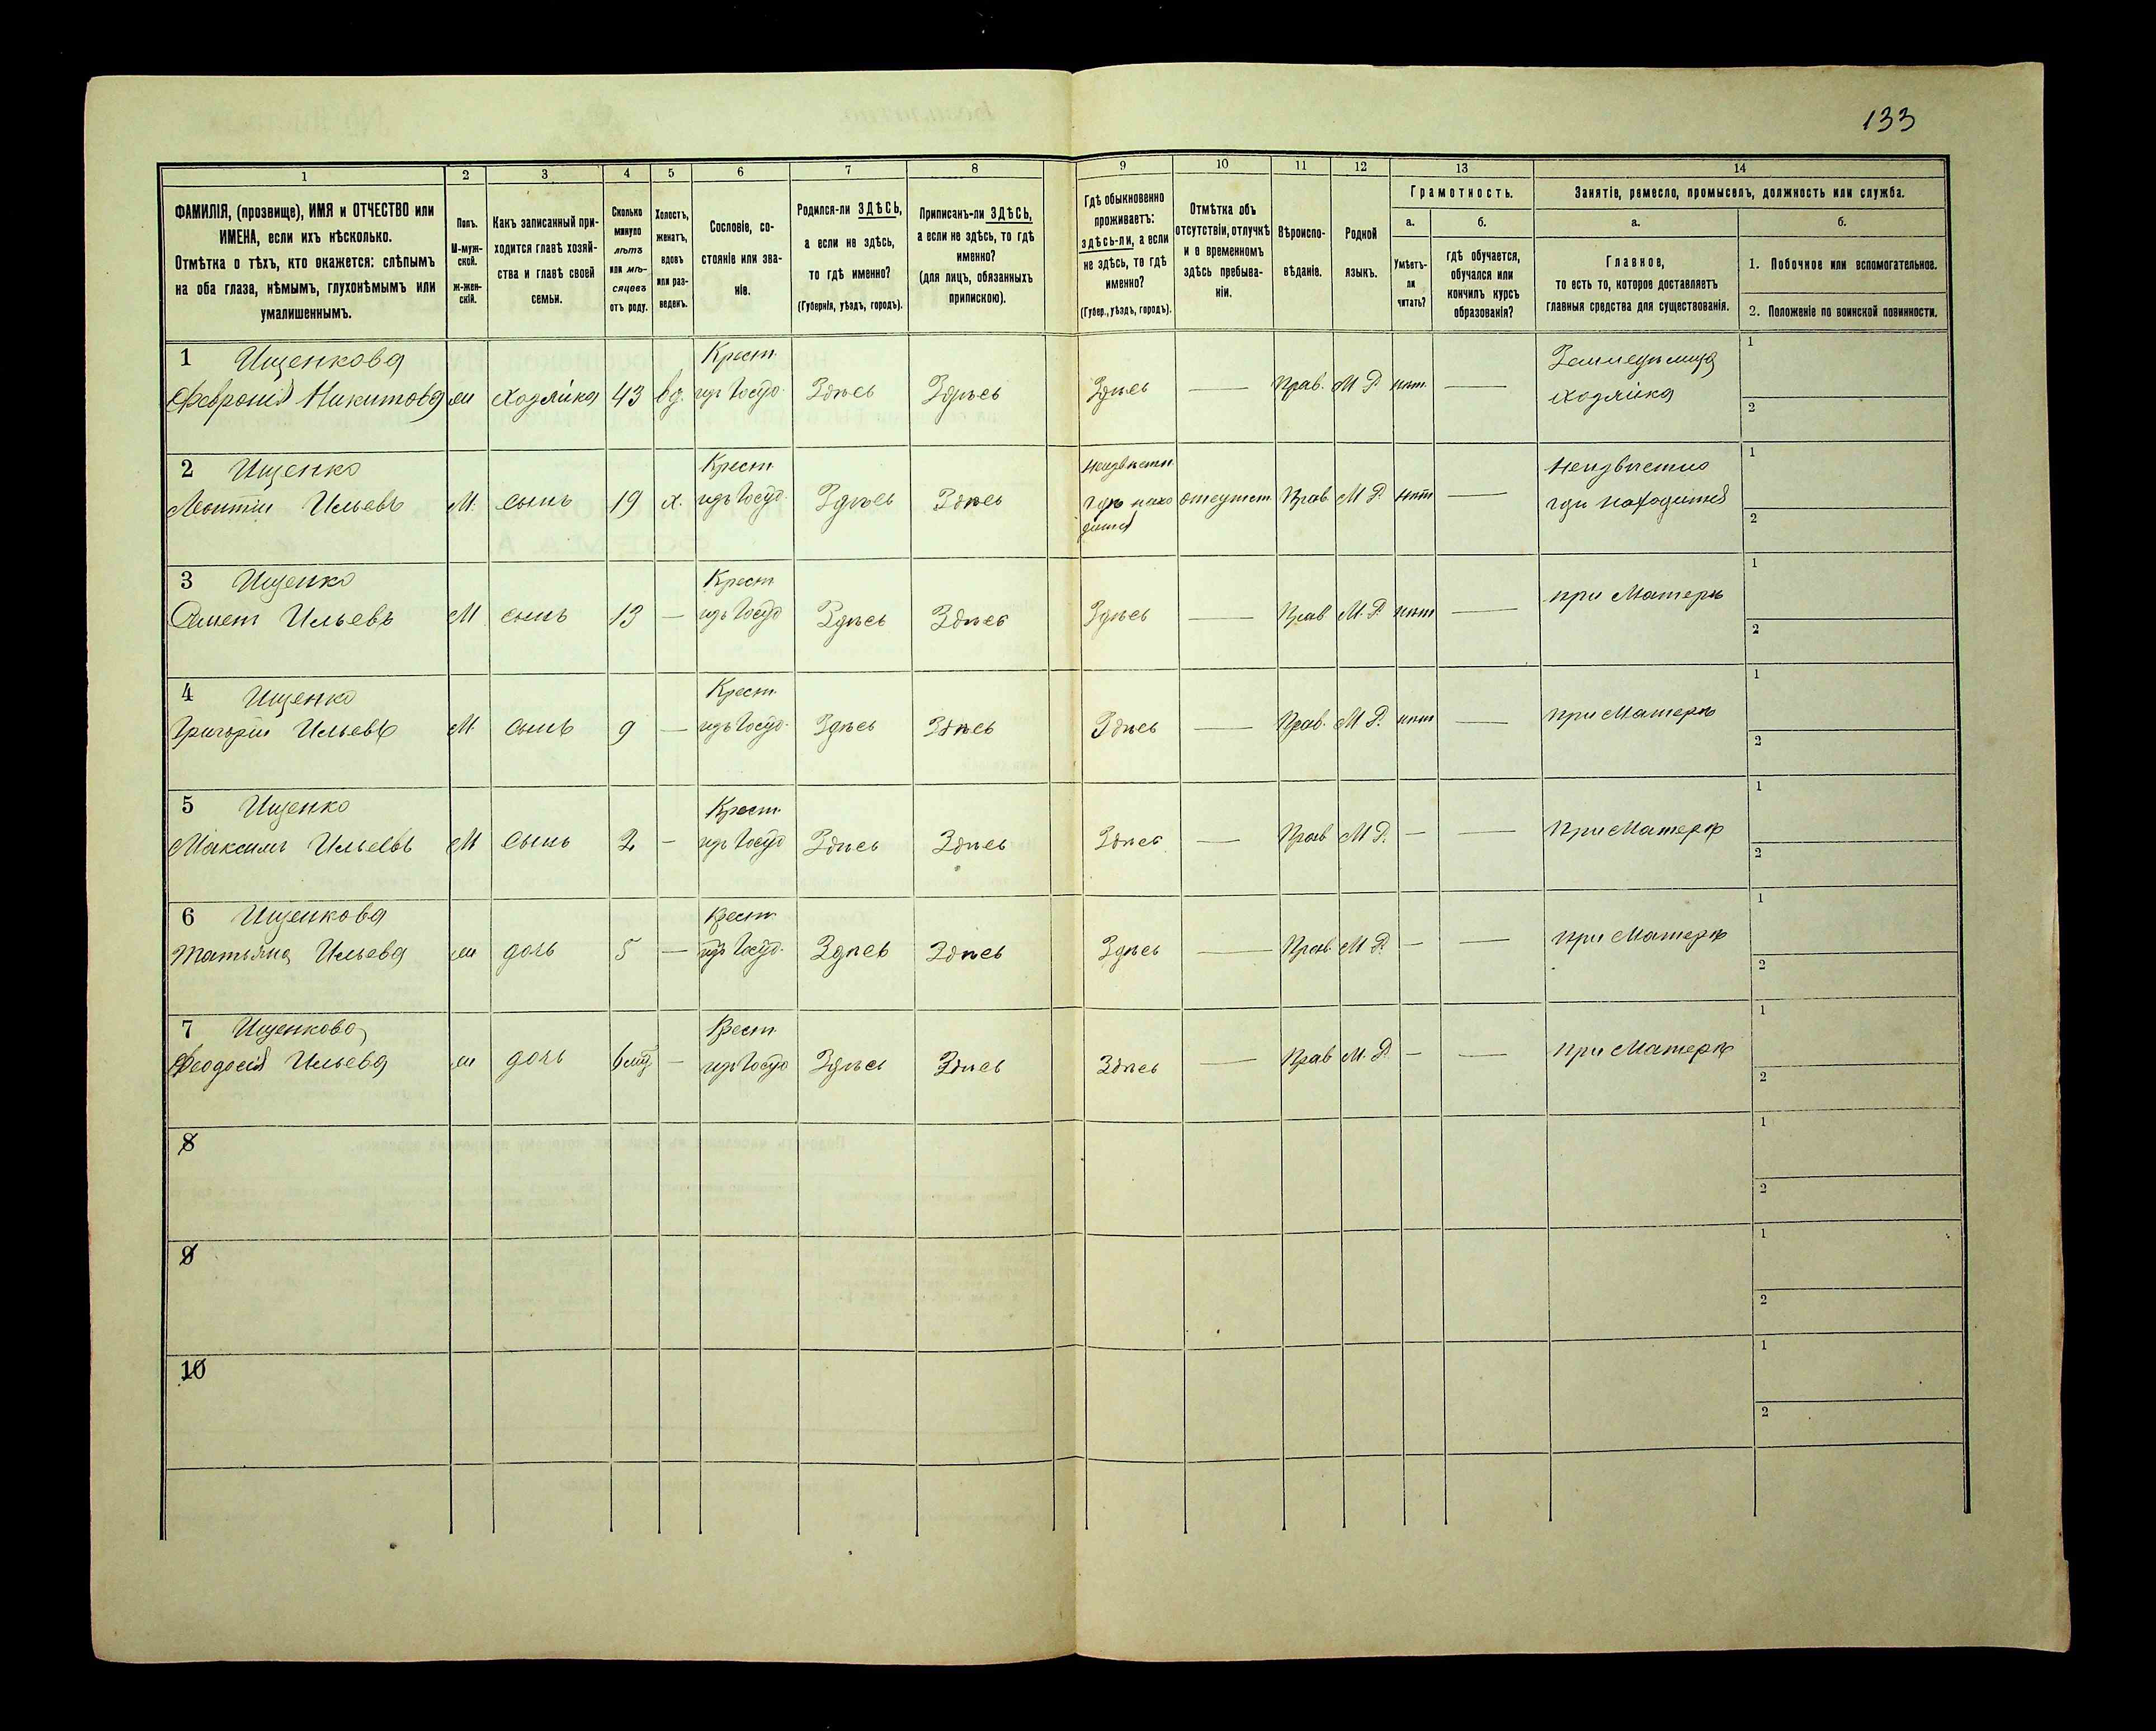 133
1
2
3
4
5
6
7
8
9
10
11
12
13
14
ФАМИЛІЯ, (прозвище), ИМЯ и ОТЧЕСТВО или
ИМЕНА, если ихъ нѣсколько.
Отмѣтка о тѣхъ, кто окажется: слѣпымъ
на оба глаза, нѣмымъ, глухонѣмымъ или
умалишеннымъ.
Полъ.
М-муж-
ской.
ж-жен-
скій.
Какъ записанный при-
ходится главѣ хозяй-
ства и главѣ своей
семьи.
Сколько
минуло
лѣтъ
или мѣ-
сяцевъ
отъ роду.
Холостъ,
женатъ,
вдовъ
или раз-
веденъ.
Сословіе, со-
стояніе или зва-
ніе.
Родился-ли ЗДѢСЬ,
а если не здѣсь,
то гдѣ именно?
(Губернія, уѣздъ, городъ).
Приписанъ-ли ЗДѢСЬ,
а если не здѣсь, то гдѣ
именно?
(для лицъ, обязанныхъ
припискою).
Гдѣ обыкновенно
проживаетъ:
здѣсь-ли, а если
не здѣсь, то гдѣ
именно?
(Губер., уѣздъ, городъ).
Отмѣтка объ
отсутствіи, отлучкѣ
и о временномъ
здѣсь пребыва-
ніи.
Вѣроиспо-
вѣданіе.
Родной
языкъ.
Грамотность.
а.
б.
Умѣетъ-
ли
читать?
гдѣ обучается,
обучался или
кончилъ курсъ
образованія?
Занятіе, ремесло, промыселъ, должность или служба.
а.
б.
Главное,
то есть то, которое доставляетъ
главныя средства для существованія.
1. Побочное или вспомогательное.
2. Положеніе по воинской повинности.
1 Ищенкова Крест.
Февронія Никитова ж хозяйка 43 вд. изъ Госуд. Здѣсь Здѣсь Здѣсь — Прав. М. Р. нѣт. —
хозяйка
1
2
2 Ищенко Крест. неизвѣстн. неизвѣстно
Леонтій Ильевъ М. сынъ 19 х. изъ Госуд. Здѣсь Здѣсь гдѣ нахо отсутст. Прав. М. Р. нѣт — гдѣ находится
дится
1
2
3 Ищенко Крест. при Матерѣ
Ильевъ М сынъ 13 — изъ Госуд Здѣсь Здѣсь Здѣсь — Прав М. Р. нѣт —
1
2
4 Ищенко Крест.
Григорій Ильевъ М. сынъ 9 — изъ Госуд. Здѣсь Здѣсь Здѣсь — Прав. М. Р. нѣт — при Матерѣ
1
2
5 Ищенко Крест.
Максимъ Ильевъ М сынъ 2 — изъ Госуд Здѣсь Здѣсь Здѣсь — Прав М. Р. — — при Матерѣ
1
2
6 Ищенкова Крест.
Татьяна Ильева ж дочь 5 — изъ Госуд. Здѣсь Здѣсь Здѣсь — Прав. М. Р. — — при Матерѣ
1
2
7 Ищенкова Крест.
Феодосія Ильева ж дочь 6 — изъ Госуд Здѣсь Здѣсь Здѣсь — Прав М. Р. — — при Матерѣ
1
2
8
1
2
9
1
2
10
1
2